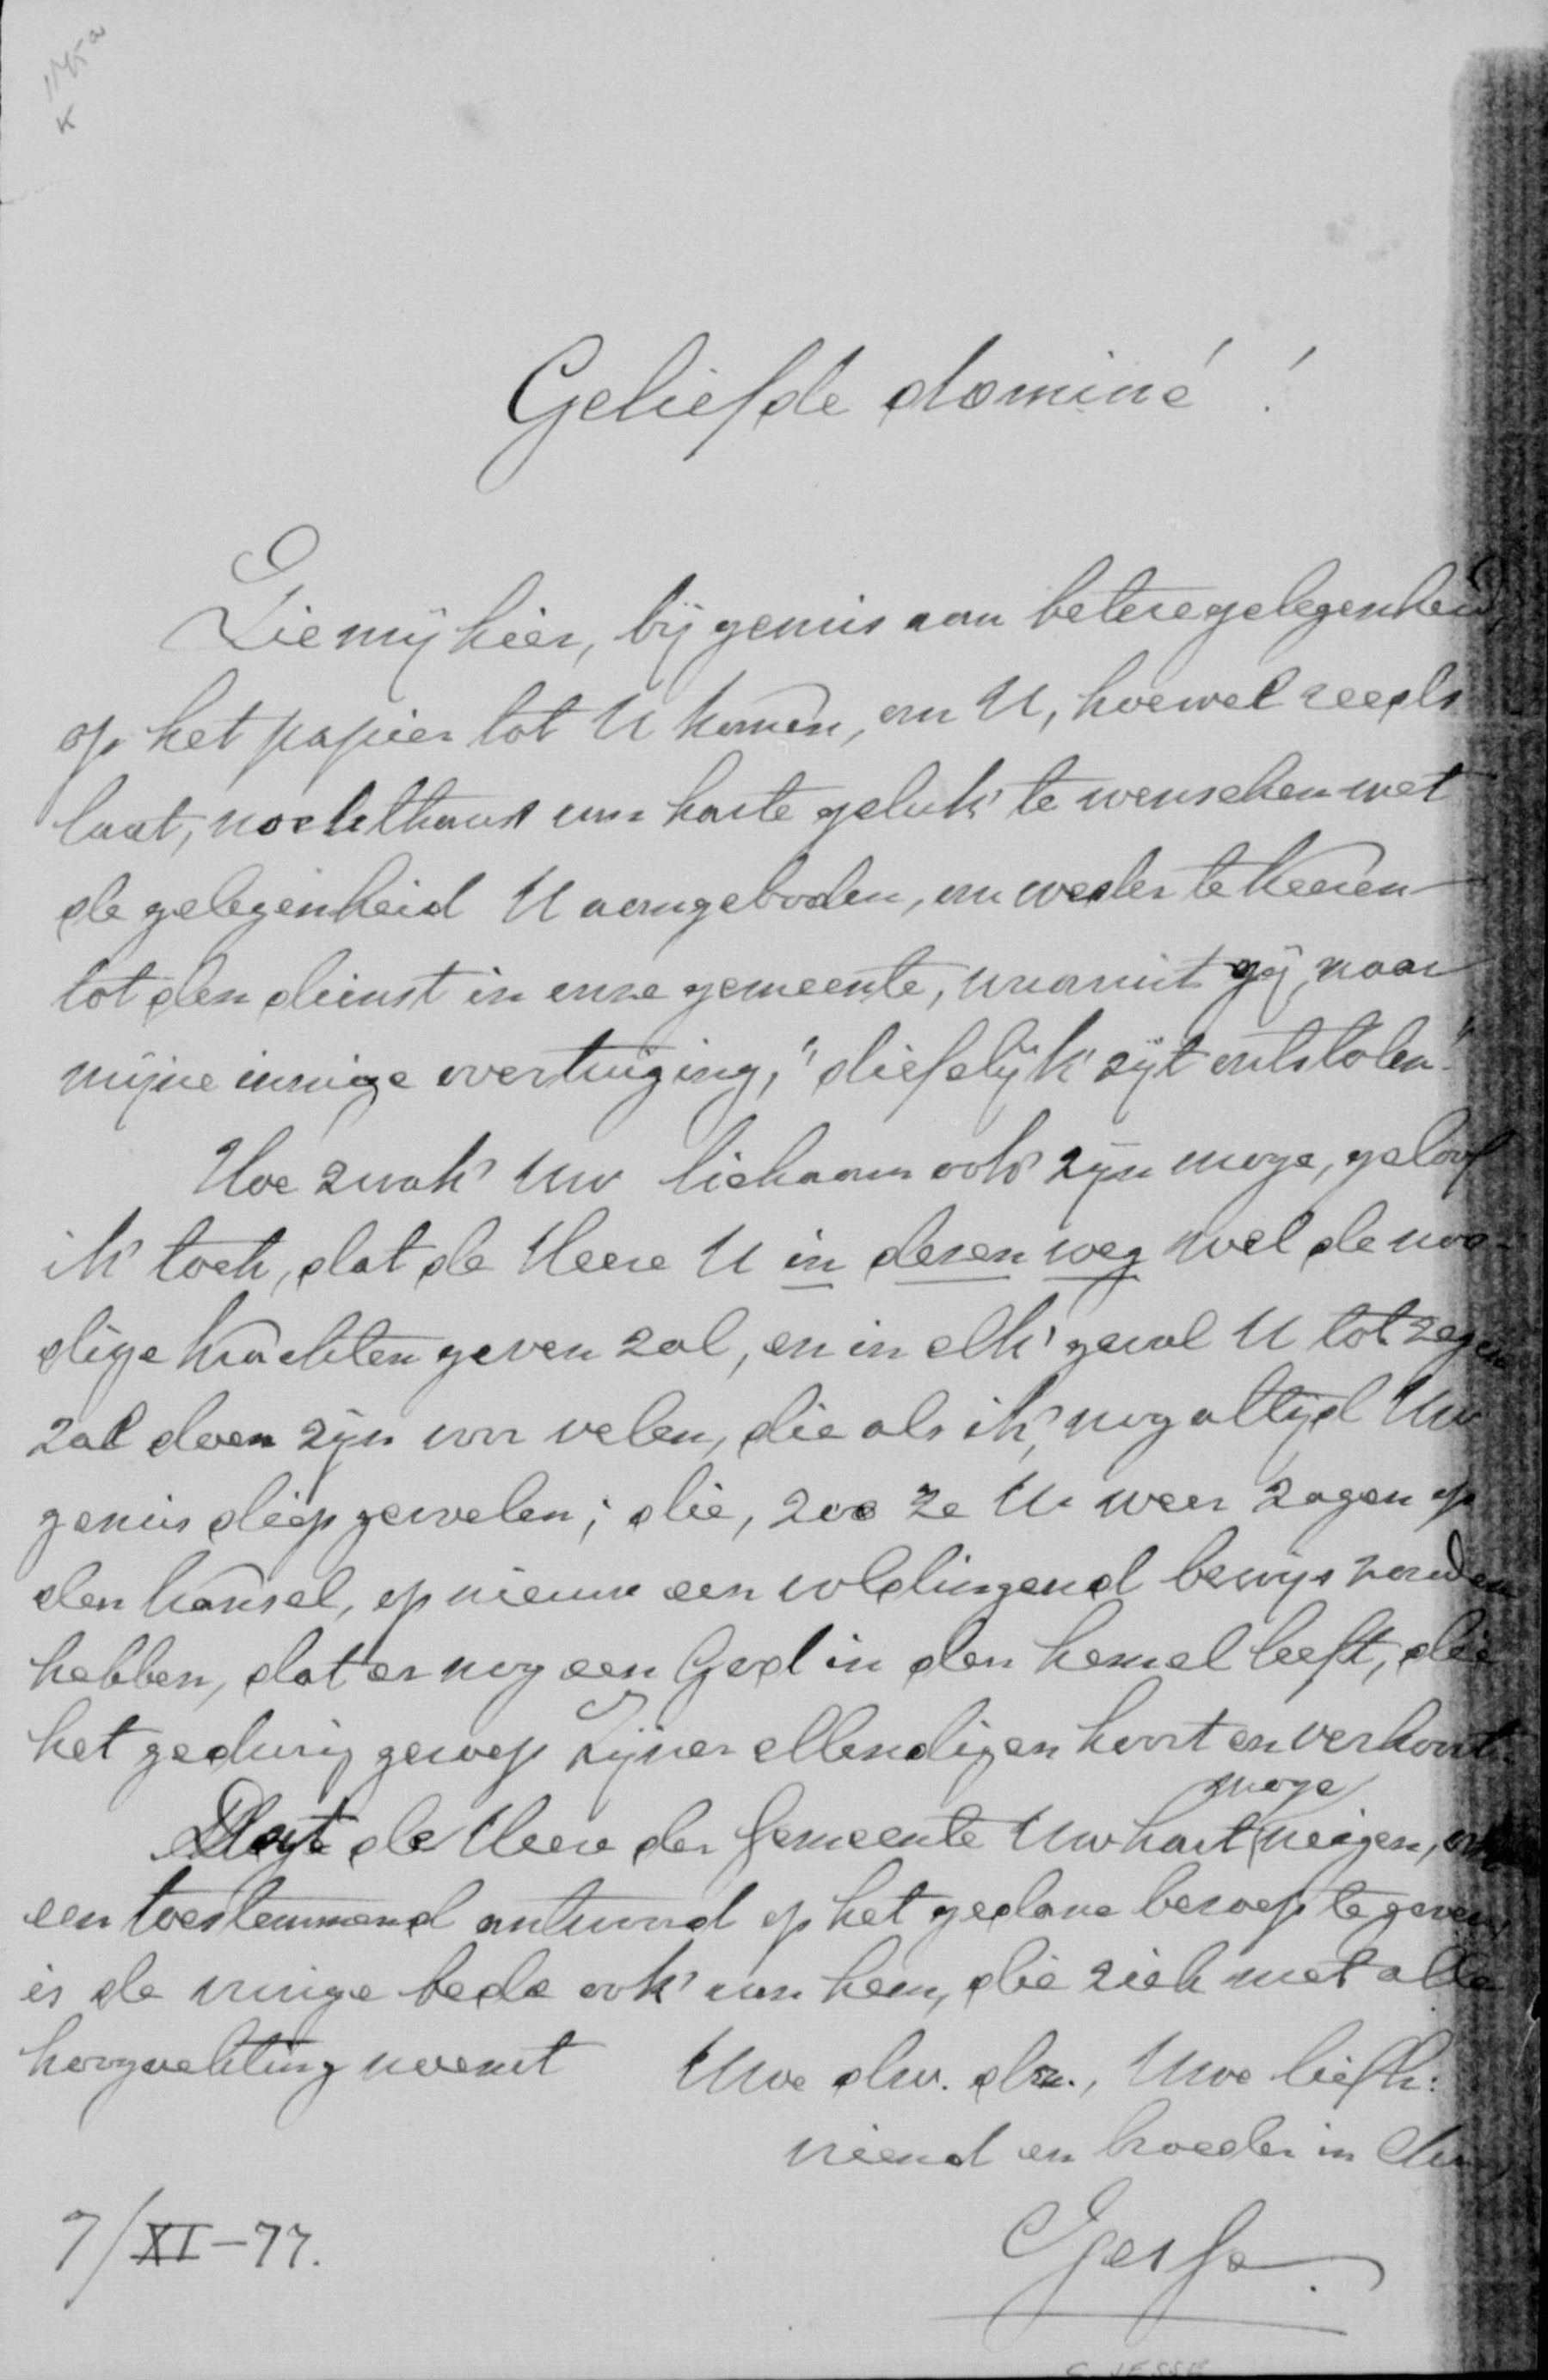 1745a
K
Geliefde dominé!
Zie mij hier, bij gemis aan betere gelegenheid,
op het papier tot U komen, om U, hoewel reeds
laat, nochthans van harte geluk te wenschen met
de gelegenheid U aangeboden, om weder te keeren
tot den dienst in onze gemeente, waaruit gij, naar
mijne innige overtuiging, "diefelijk zijt ontstolen".
Hoe zwak Uw lichaam ook zijn moge, geloof
ik toch, dat de Heere U in dezen weg wel de noo-
dige krachten geven zal, en in elk geval U tot zegen
zal doen zijn voor velen, die als ik, nog altijd Uw
gemis diep gevoelen; die, zoo ze U weer zagen op
den kansel, op nieuw een voldingend bewijs zouden
hebben, dat er nog een God in den hemel leeft, die
het gedurig geroep Zijner ellendigen hoort en verhoort.
Dat de Heere der Gemeente Uw hart moge neigen, om
een toestemmend antwoord op het gedane beroep te geven,
is de innige bede ook van hem, die zich met alle
hoogachting noemt Uwe dw. dr., Uwe liefh:
vriend en broeder in Chr.,
7/XI-77.
CJesse.
C. JESSE